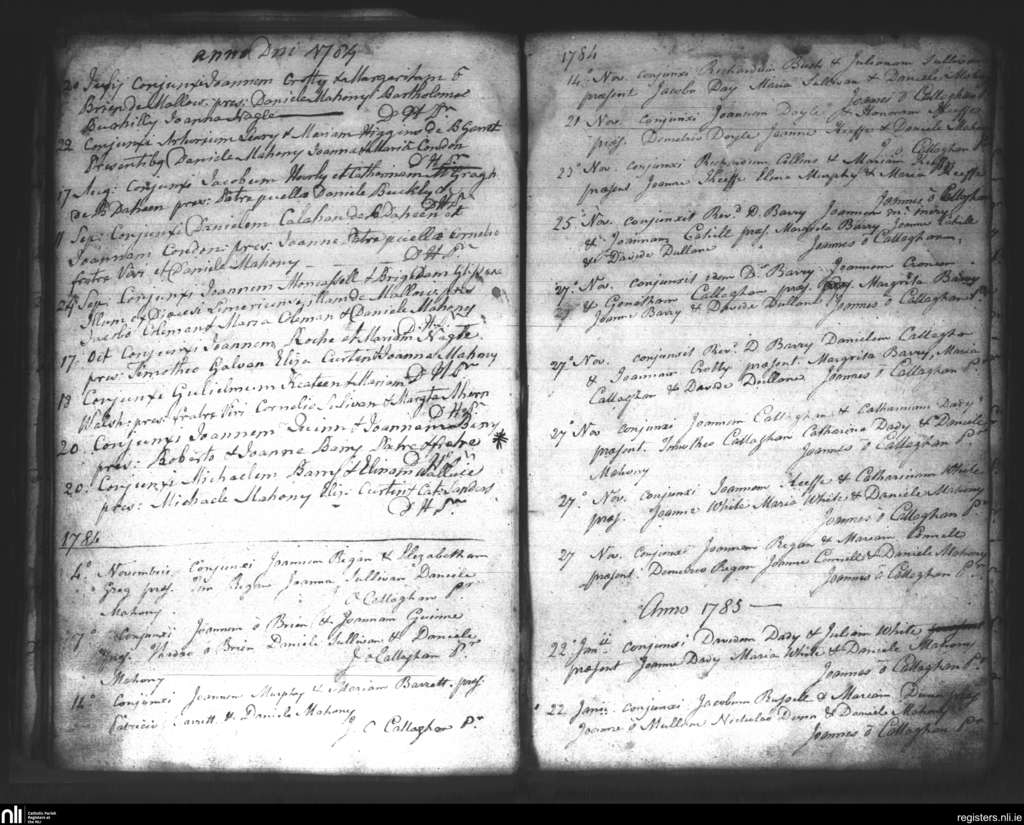 anno Dni 1784
20 Conjunxi Joannem Crotty & Margaritam
Brien de Mallow. pres: Daniele Mahony Bartholomeo
Joanna Nagle D H Pr
22 Conjunxi & Mariam Higgins de
Presentibus Daniele Mahony Joanna & Maria Condon
D H Pr
17 Aug: Conjunxi Jacobum Hurly et
pres: Patre puella Daniele Buckly
D H Pr
11 Sep: Conjunxi Danielem Calahan de et
Joannam Condon pres: Joanne Patre puellæ Cornelio
fratre Viri et Daniele Mahony D H Pr
24 Sep: Conjunxi Joannem & Brigidam
de Mallow. pres
Jacobo Maria & Daniele Mahony
D H Pr
17: Oct Conjunxi Joannem Roche et Mariam Nagle
pres: Timotheo Galvan Eliza Curtin & Joanna Mahony
D H Pr
18 Conjunxi Gulielmum Keateen & Mariam
Walsh: pres: fratre Viri Cornelio Sulivan & Margta Ahern
D H Pr
20: Conjunxi Joannem Quin & Joannam Barry
pres: Roberto & Joanne Barry Patre & fratre *
D H Pr
20: Conjunxi Michaelem Barry & Elinam Wallace
pres: Michaele Mahony Eliz: Curtin & Cate Landers
D H Pr
1784
4o Novembris Conjunxi Joannem Regan & Elizabetham
Greg pres: Tim Regan Joanna Sullivan Daniele
Mahony O Callaghan Pr
7o Conjunxi Joannem o Brien & Joannam Guinee
pres: o Brien Daniele Sullivan & Daniele
Mahony J. o Callaghan Pr
14o Conjunxi Joannem Murphy & Mariam Barrett. pres:
Patricio Barrett & Daniele Mahony
J. O Callaghan Pr
1784
14o Nov. conjunxi Richardum Bush & Julianam Sullivan
present Jacobo Day Maria Sullivan & Daniele Mahony
Joannes o Callaghan Pr
21 Nov. conjunxi Joannem Doyle & Honoram
pres: Demetrio Doyle Joanne Keeffe & Daniele Mahony
J. Callaghan Pr
23o Nov. conjunxi Richardum Collins & Mariam Keeffe
present Joanne Keeffe Elina Murphy & Maria Keeffe
Joannes o Callaghan
25. Nov. conjunxit Revd. D. Barry Joannem
& Joannam Cahill pres. Margrita Barry Joanne Cahill
& Davide Dullane Joannes o Callaghan
27. Nov. conjunxit eam D. Barry Joannem Cronin
& Callaghan pres. Margrita Barry
Joanne Barry & Davide Dullane Joannes o Callaghan Pr
27o Nov. conjunxit Revd. D Barry Danielem Callaghan
& Joannam Crotty present. Margrita Barry, Maria
Callaghan & Davide Dullane Joannes o Callaghan Pr
27o Nov conjunxi Joannem Callaghan & Catharinam Dady
present. Timotheo Callaghan Catherina Dady & Daniele
Mahony Joannes o Callaghan Pr
27o Nov. conjunxi Joannem Keeffe & Catharinam White
pres. Joanne White Maria White & Daniele Mahony
Joannes o Callaghan Pr
27 Nov. conjunxi Joannem Regan & Mariam Connell
present. Demetreo Regan Joanne Connell & Daniele Mahony
Joannes o Callaghan Pr
Anno 1785
22o Janii conjunxi Davidem Dady & Juliam White
present Joanne Dady Maria White & Daniele Mahony
Joannes o Callaghan Pr
22 Janii. conjunxi Jacobum Russell & Mariam
Joanne o Mullan Nicholao & Daniele Mahony
Joannes o Callaghan Pr
nli
Catholic Parish
Registers at
the NLI
registers.nli.ie